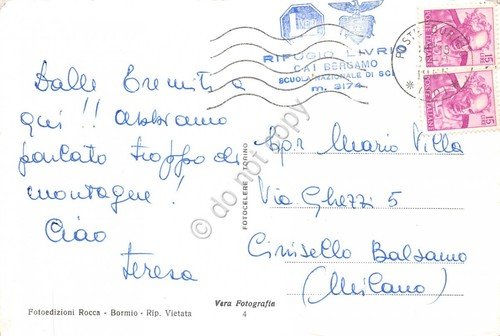 RIFUGIO LIVRIO
CAI BERGAMO
SCUOLA NAZIONALE DI SCI
m. 3174
POSTE ITALIANE
L.15
POSTE ITALIANE
L.15
Dalle Tremiti a
qui!! abbiamo
parlato troppo di
montagne!
Ciao
Teresa
Egr. Mario Villa
Via Ghezzi 5
Cinisello Balsamo
(Milano)
FOTOCELERE TORINO
do not copy
Vera Fotografia
4
Fotoedizioni Rocca - Bormio - Rip. Vietata